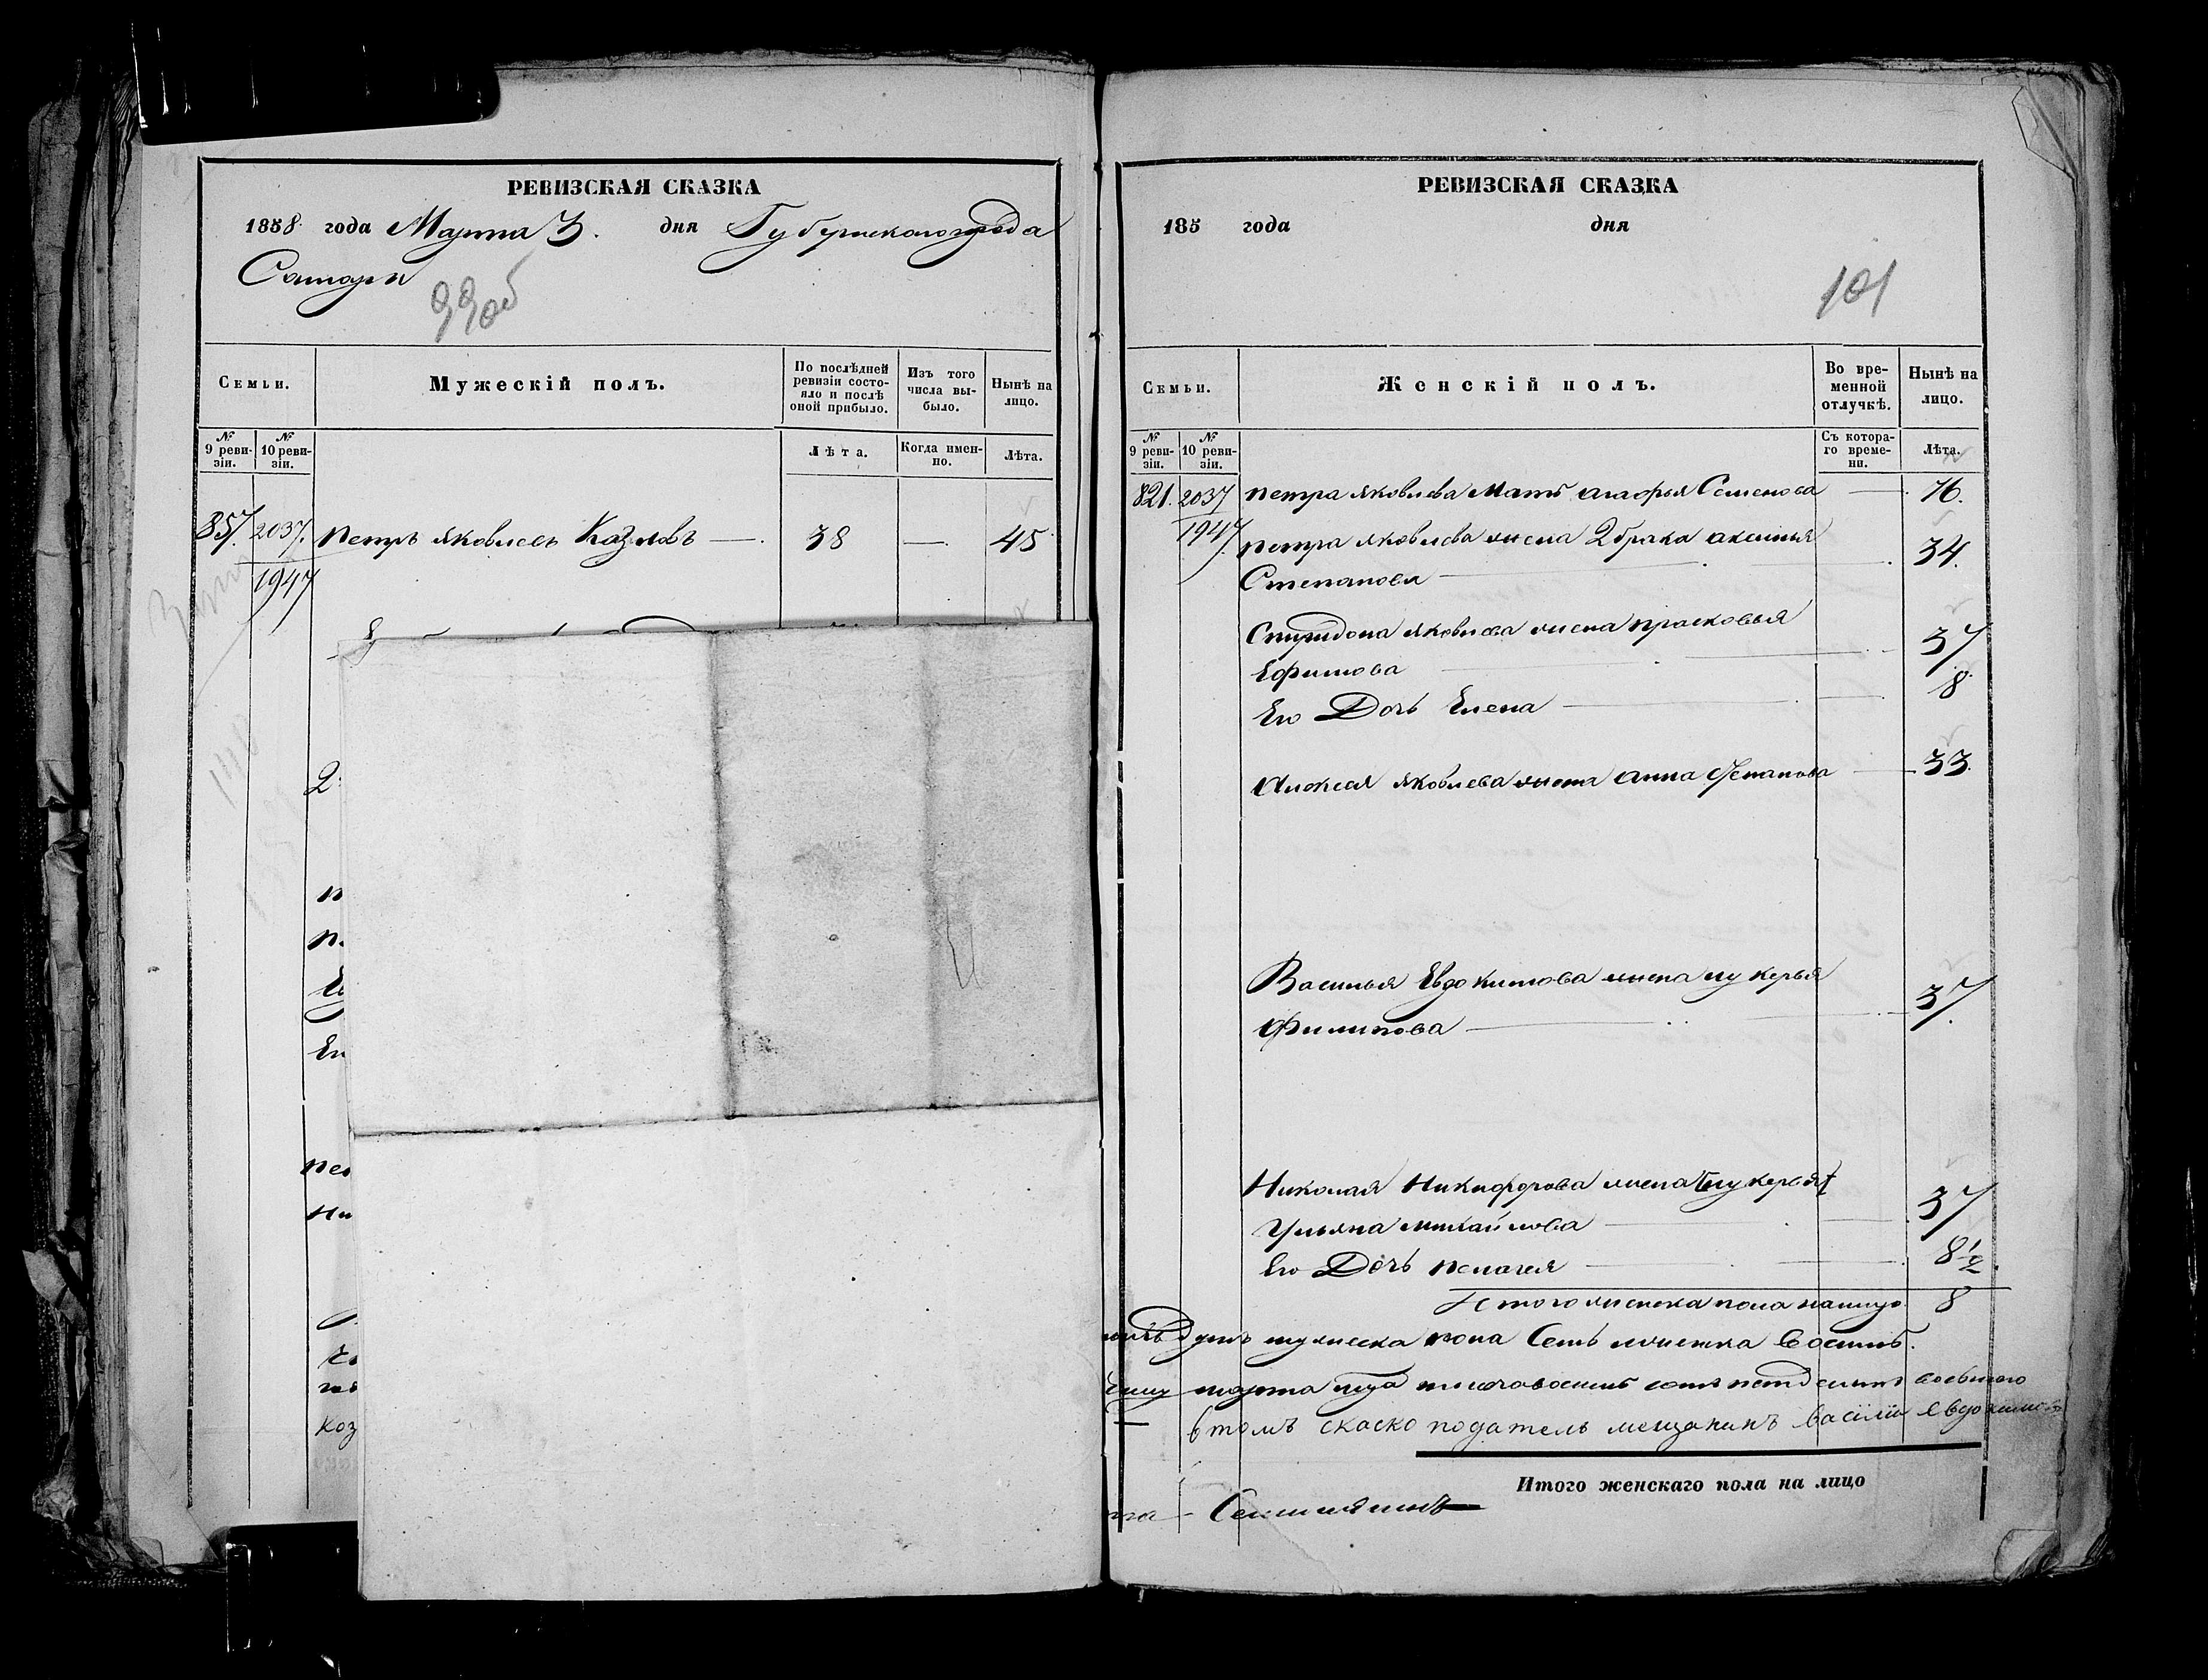 РЕВИЗСКАЯ СКАЗКА
1858 года Марта 3. дня Губернскаго города
Самары
99об
Семьи.
Мужескій полъ.
По послѣдней ревизіи состояло и послѣ оной прибыло.
Изъ того числа выбыло.
Нынѣ на лицо.
№ 9 ревизіи.
№ 10 ревизіи.
Лѣта.
Когда именно.
Лѣта.
857. 2037. Петръ яковлевъ Козловъ — 38 — 45
1947
2.
Ег
пет
Ни
коз
РЕВИЗСКАЯ СКАЗКА
185 года дня
101
Семьи.
Женскій полъ.
Во временной отлучкѣ.
Нынѣ на лицо.
№ 9 ревизіи.
№ 10 ревизіи.
Съ котораго времени.
Лѣта.
821. 2037 петра яковлева мать агафья Семенова — 76.
1947. петра яковлева жена 2 брака аксинья
Степанова — 34.
Спиридона яковлева жена прасковья
Ефимова — 37
Его Дочь Елена — 8
Алексея яковлева жена анна Степанова — 33.
Василья Евдокимова жена лукерья
Филипова — 37.
Николая Никифорова жена [лукерья]
Ульяна михайлова — 37
Его Дочь пелагея — 8½.
Итого женска пола налицо 8
душъ мужеска пола Семь женска Восимь.
марта года тысяча восемь сотъ петдесятъ восьмого
втомъ скаско податель мещанинъ василий Евдокимовъ
Итого женскаго пола на лицо